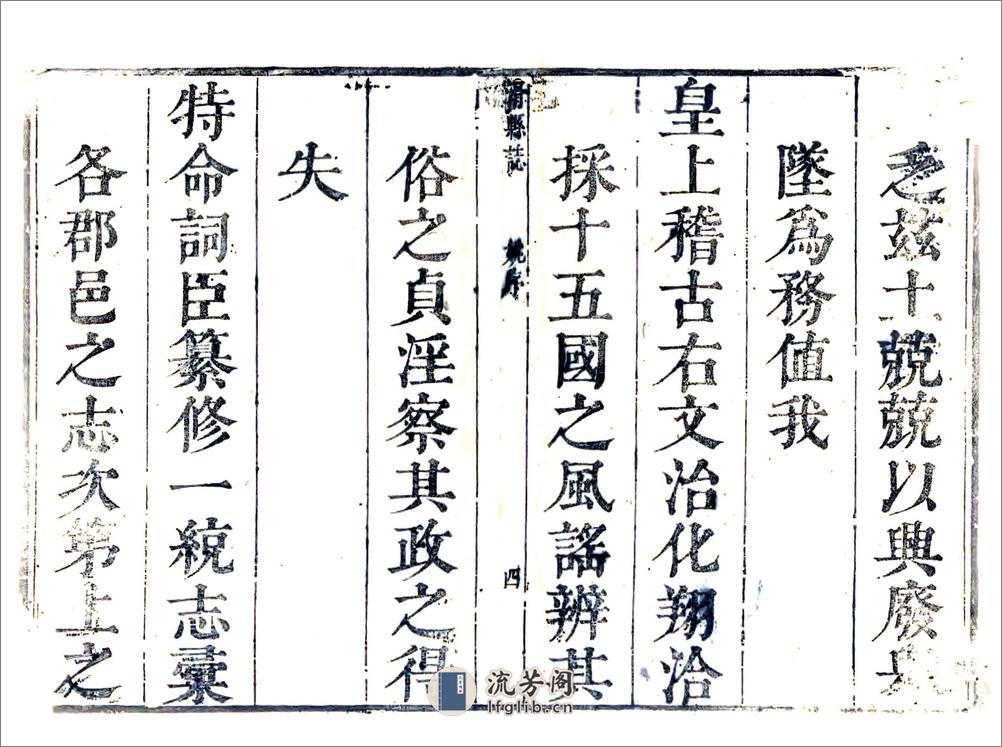 乏茲土兢兢以典廢
墜爲務值我
皇上稽古右文治化翔洽
採十五國之風謠辨其
滑縣誌 姚序 四
俗之貞淫察其政之得
失
特命詞臣纂修一統志彙
各郡邑之志次第上之
流芳阁
lfglib.cn